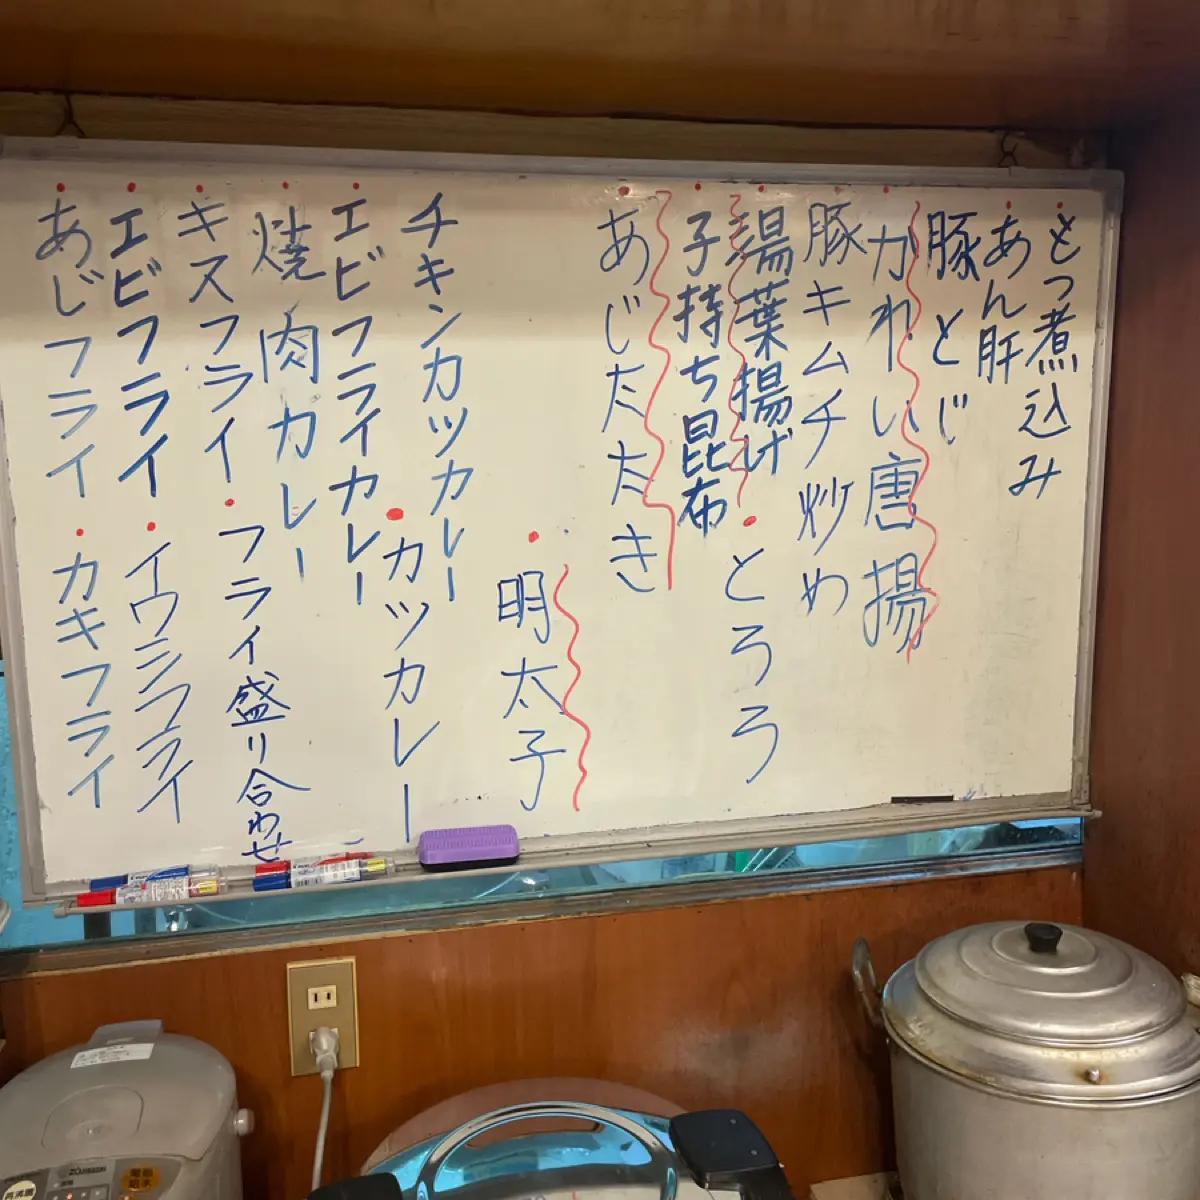 ・もつ煮込み
・あん肝
豚とじ
・かれい唐揚
・豚キムチ炒め
・湯葉揚げ
・とろろ
・子持ち昆布
・あじたたき
・明太子
チキンカツカレー
・カツカレー
・エビフライカレー
・焼肉カレー
・キスフライ
・フライ盛り合わせ
・エビフライ
・イワシフライ
・あじフライ
・カキフライ
ZOJIRUSHI